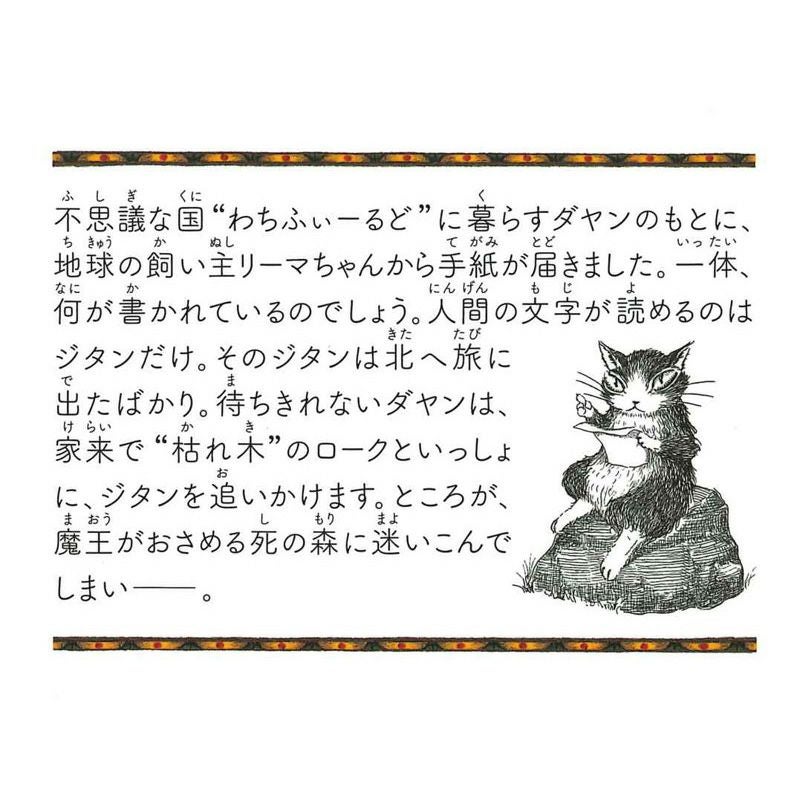 不思議な国“わちふぃーるど”に暮らすダヤンのもとに、
地球の飼い主リーマちゃんから手紙が届きました。一体、
何が書かれているのでしょう。人間の文字が読めるのは
ジタンだけ。そのジタンは北へ旅に
出たばかり。待ちきれないダヤンは、
家来で“枯れ木”のロークといっしょ
に、ジタンを追いかけます。ところが、
魔王がおさめる死の森に迷いこんで
しまい――。